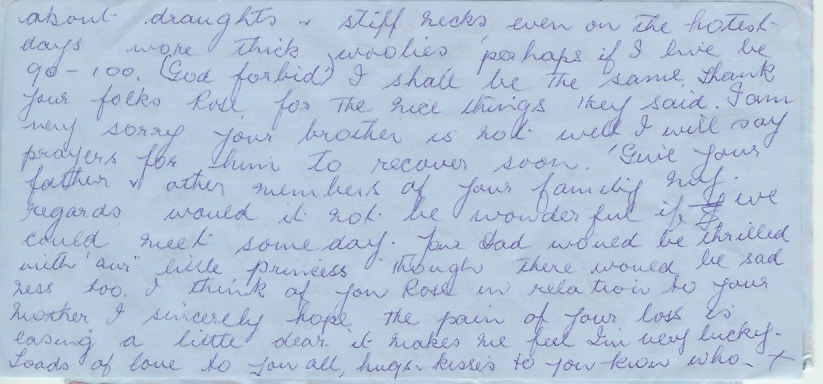 about draughts & stiff necks even on the hotest
days wore thick woolies perhaps if I live be
90-100. (God forbid) I shall be the same. Thank
your folks Rose, for the nice things they said. I am
very sorry your brother is not well I will say
prayers for him to recover soon. Give your
father & other members of your family my.
regards would it not be wonderful if we
could meet some day. Your Dad would be thrilled
with 'our' little princess though there would be sad
ness too. I think of you Rose in relation to your
Mother I sincerely hope the pain of your loss is
easing a little dear it makes me feel I'm very lucky.
Loads of love to you all, hugs & kisses to you know who - x